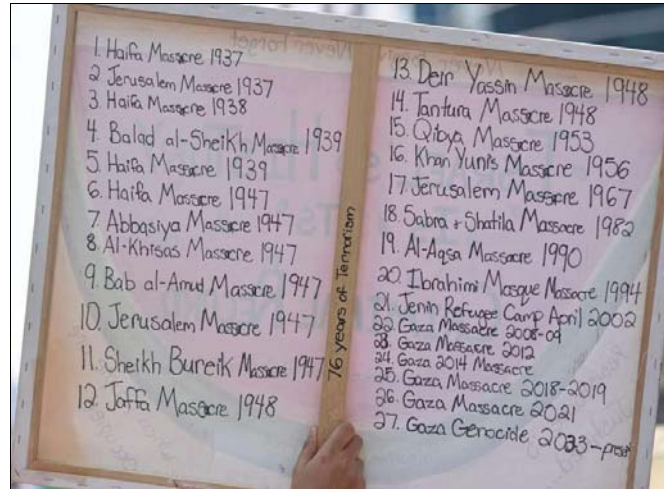 Never Forget
1. Haifa Massacre 1937
2 Jerusalem Massacre 1937
3. Haifa Massacre 1938
4. Balad al-Sheikh Massacre 1939
5. Haifa Massacre 1939
6. Haifa Massacre 1947
7. Abbasiya Massacre 1947
8. Al-Khisas Massacre 1947
9. Bab al-Amud Massacre 1947
10. Jerusalem Massacre 1947
11. Sheikh Bureik Massacre 1947
12 Jaffa Massacre 1948
76 years of Terrorism
13. Deir Yassin Massacre 1948
14. Tantura Massacre 1948
15. Qibya Massacre 1953
16. Khan Yunis Massacre 1956
17. Jerusalem Massacre 1967
18. Sabra + Shatila Massacre 1982
19. Al-Aqsa Massacre 1990
20. Ibrahimi Mosque Massacre 1994
21. Jenin Refugee Camp April 2002
22. Gaza Massacre 2008-09
23. Gaza Massacre 2012
24. Gaza 2014 Massacre
25. Gaza Massacre 2018-2019
26. Gaza Massacre 2021
27. Gaza Genocide 2023-present